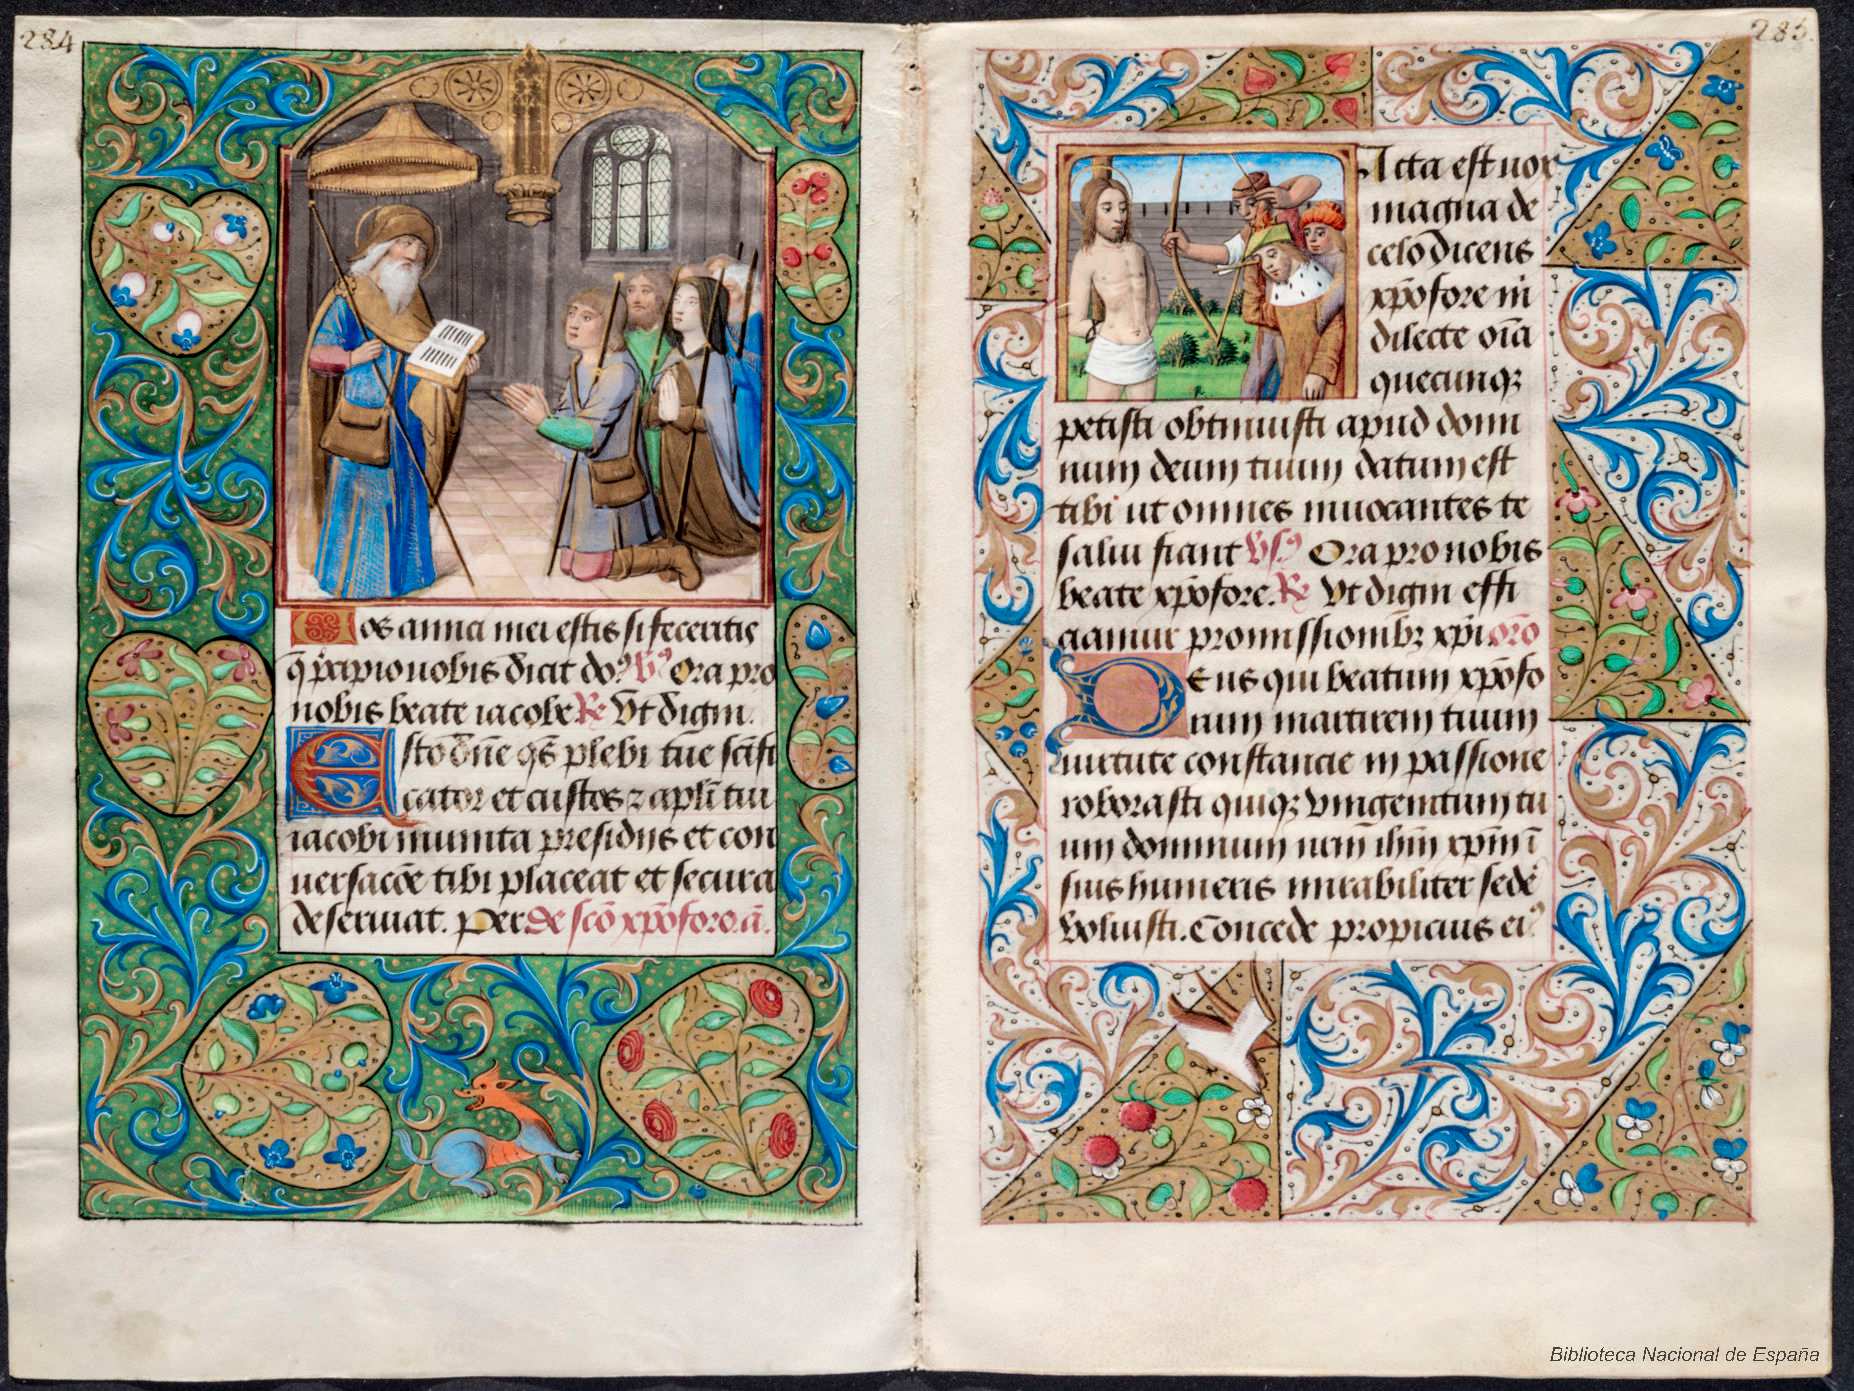 284
Vos amici mei estis si feceritis
q̄ p̄cipio uobis dicit do᷒ V᷒ Ora pro
nobis beate iacobe R̷ Vt digni.
Esto dn̄e qs̄ plebi tue scīfi
cator et custos ⁊ apl̄i tui
iacobi munita presidiis et con
uersacōe tibi placeat et secura
deseruiat. Per De scō xp̄oforo.ā.
285.
Facta est uox
magna de
celo dicens
xp̄ofore m̄
dilecte oīa
quecunqꝫ
petisti obtinuisti apud domi
num deum tuum datum est
tibi ut omnes inuocantes te
salui fiant Vs᷒ Ora pro nobis
beate xp̄ofore. R̷ Vt digni effi
ciamur promissionibꝫ xp̄i oro
Deus qui beatum xp̄ofo
rum martirem tuum
uirtute constancie in passione
roborasti quiqꝫ vnigenitum tu
um dominum nr̄m ih̄m xp̄m ī
suis humeris mirabiliter sedē
voluisti. Concede propicius ei᷒
Biblioteca Nacional de España